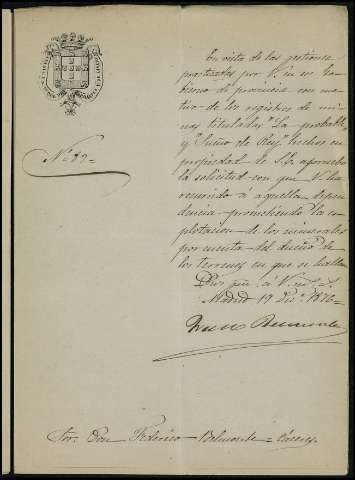 Nº 82=
En vista de las gestiones
practicadas por V. en ese Go-
bierno de provincia con mo-
tivo de los registros de mi-
nas titulados "La probable"
y "Suño de Rey" hechos en
propiedad de S.E. apruebo
la solicitud con que V. ha
recurrido á aquella depen-
dencia prometiendo la ex-
plotacion de los minerales
por cuenta del dueño de
los terrenos en que se hallan
Dios gue. á V. ms. as.
Madrid 19 Dic. 1870=
Sor. Don Federico Belmonte = Cáceres